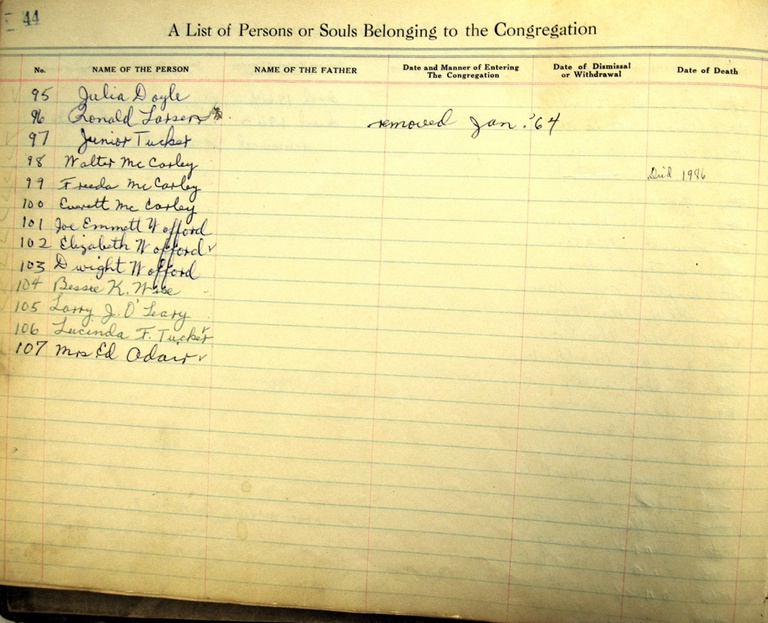 44
A List of Persons or Souls Belonging to the Congregation
No. NAME OF THE PERSON NAME OF THE FATHER Date and Manner of Entering The Congregation Date of Dismissal or Withdrawal Date of Death
95 Julia Doyle
96 Ronald Larsen removed Jan. '64
97 Junior Tucker
98 Walter McCorley
99 Freeda McCorley Died 1986
100 Everett McCorley
101 Joe Emmett Wofford
102 Elizabeth Wofford ✓
103 Dwight Wofford
104 Bessie K. Wise
105 Larry J. O'Leary
106 Lucinda F. Tucker
107 Mrs Ed Adair ✓